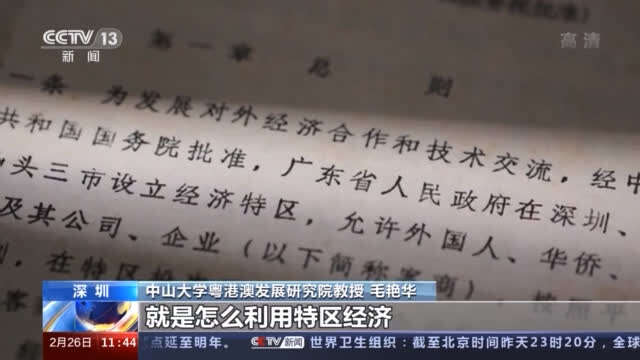 CCTV 13
新闻
高清
第一章 总 则
一条 为发展对外经济合作和技术交流,经中
共和国国务院批准,广东省人民政府在深圳、
头三市设立经济特区,允许外国人、华侨、
及其公司、企业(以下简称客商)
在特区投
深圳
中山大学粤港澳发展研究院教授 毛艳华
就是怎么利用特区经济
2月26日 11:44 点延至明年。 CCTV新闻 世界卫生组织:截至北京时间昨天23时20分,全球